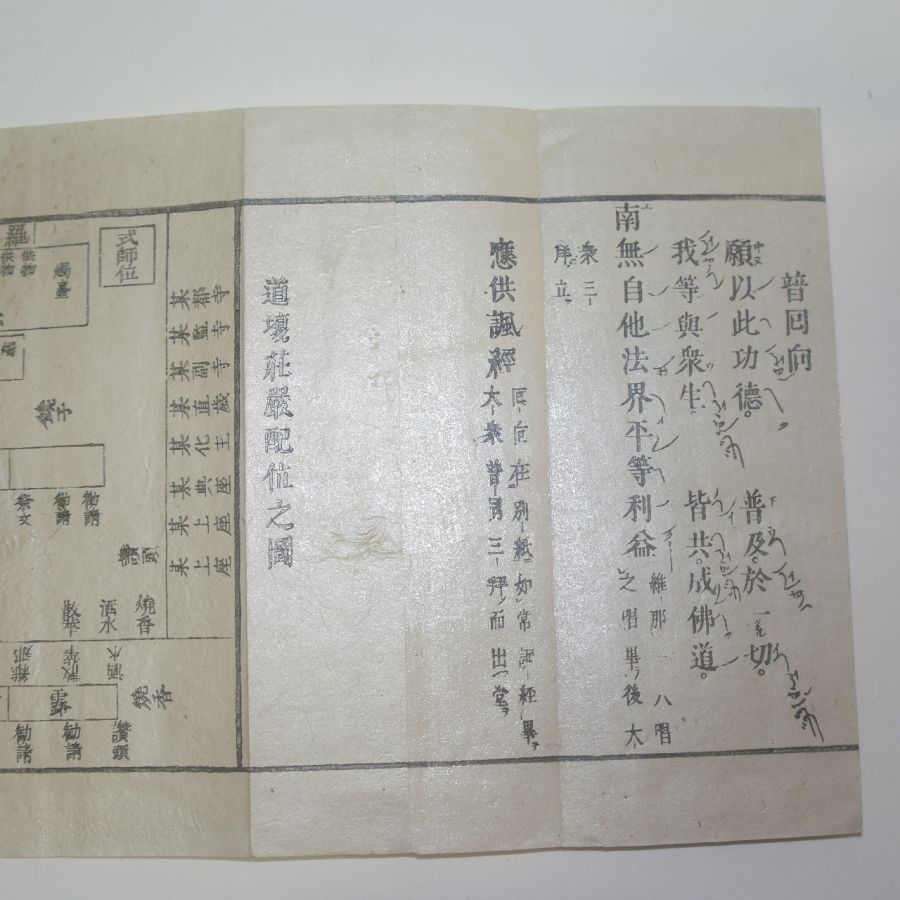 普回向
願以此功德。普及於一切。
我等與衆生。皆共成佛道。
南無自他法界平等利益
維那一人唱
之唱畢後大
衆三
拜立
應供諷經
回向在別紙如常諷經畢
大衆普同三拜而出堂
道壇莊嚴配位之圖
式師位
某都寺
某監寺
某副寺
某直歲
某化主
某典座
某上座
某上座
燭臺
供物
供物
鐃子
勸請
勸請
祭文
讚頭
燒香
洒水
散華
洒水
散華
燒香
讚頭
勸請
勸請